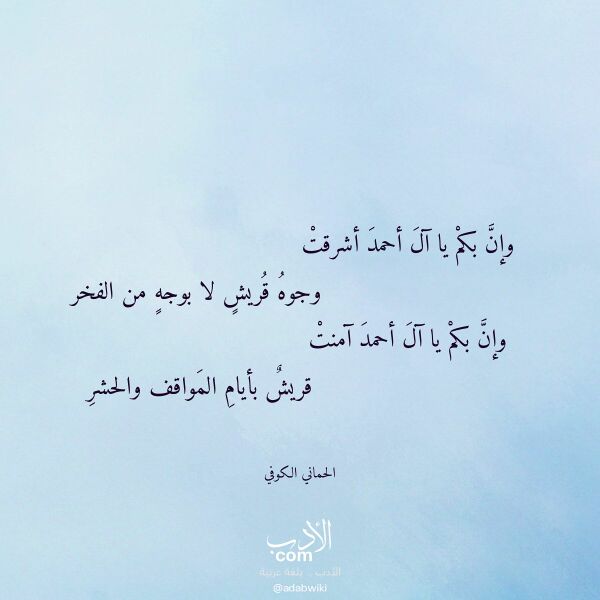 وإنَّ بكمْ يا آلَ أحمدَ أشرقتْ
وجوهُ قُريشٍ لا بوجهٍ من الفخر
وإنَّ بكمْ يا آلَ أحمدَ آمنتْ
قريشٌ بأيامِ المَواقف والحشرِ
الحماني الكوفي
الأدب
com
الأدب .. بلغة عربية
@adabwiki